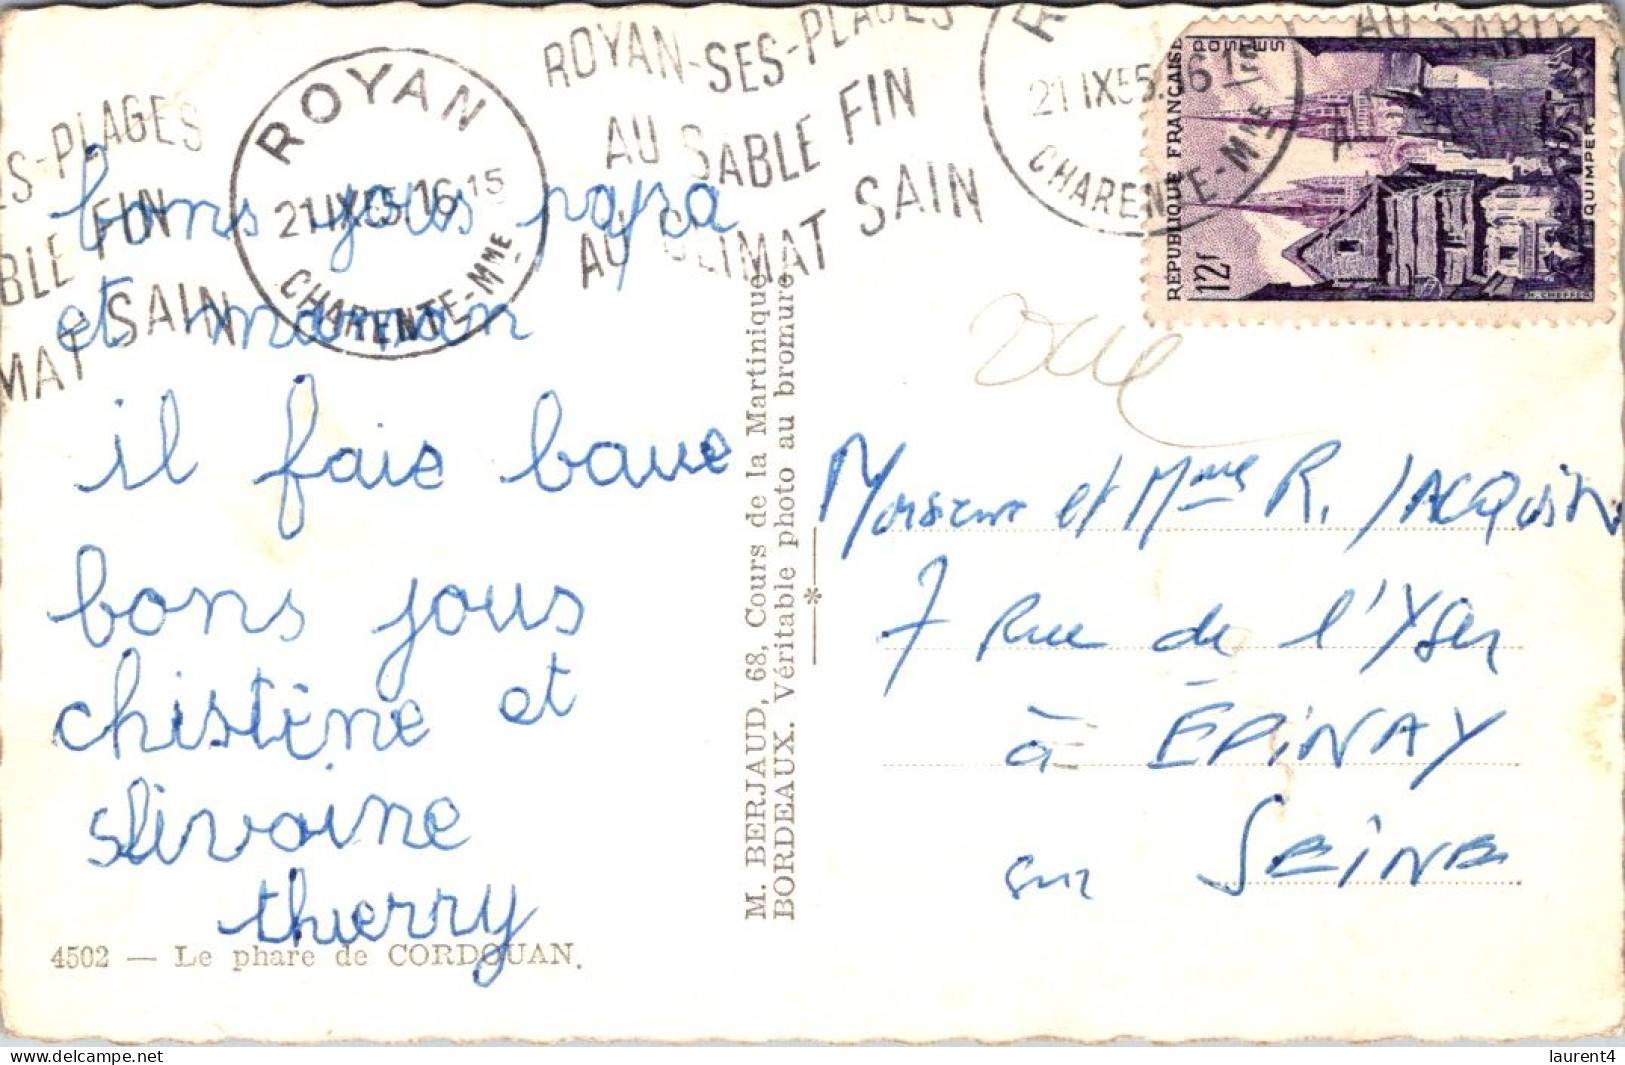 ROYAN-SES-PLAGES
AU SABLE FIN
AU CLIMAT SAIN
S-PLAGES
BLE FIN
MAT SAIN
ROYAN
21 IX 55 16-15
CHARENTE-MME
R
21 IX 55. 16 15
CHARENTE-MNE
AU SABLE
POSTES
REPUBLIQUE FRANÇAISE
12F
QUIMPER
H. CHEFFER
bons jous papa
et maman
il fais baue
bons jous
chistine et
slivaine
thierry
4502 — Le phare de CORDOUAN.
M. BERJAUD, 68, Cours de la Martinique
BORDEAUX. Véritable photo au bromure
Monsieur et Mme R. JACQUIN
7 Rue de l'Yser
à ÉPINAY
sur SEINE
laurent4